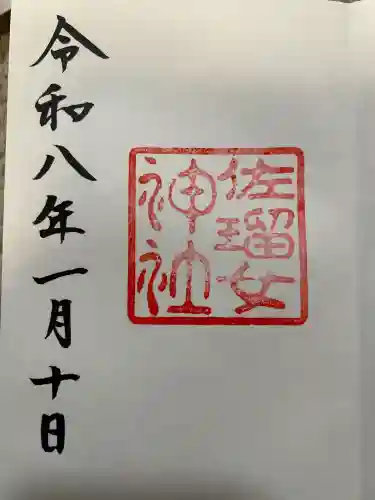 佐瑠女
神社
令和八年一月十日